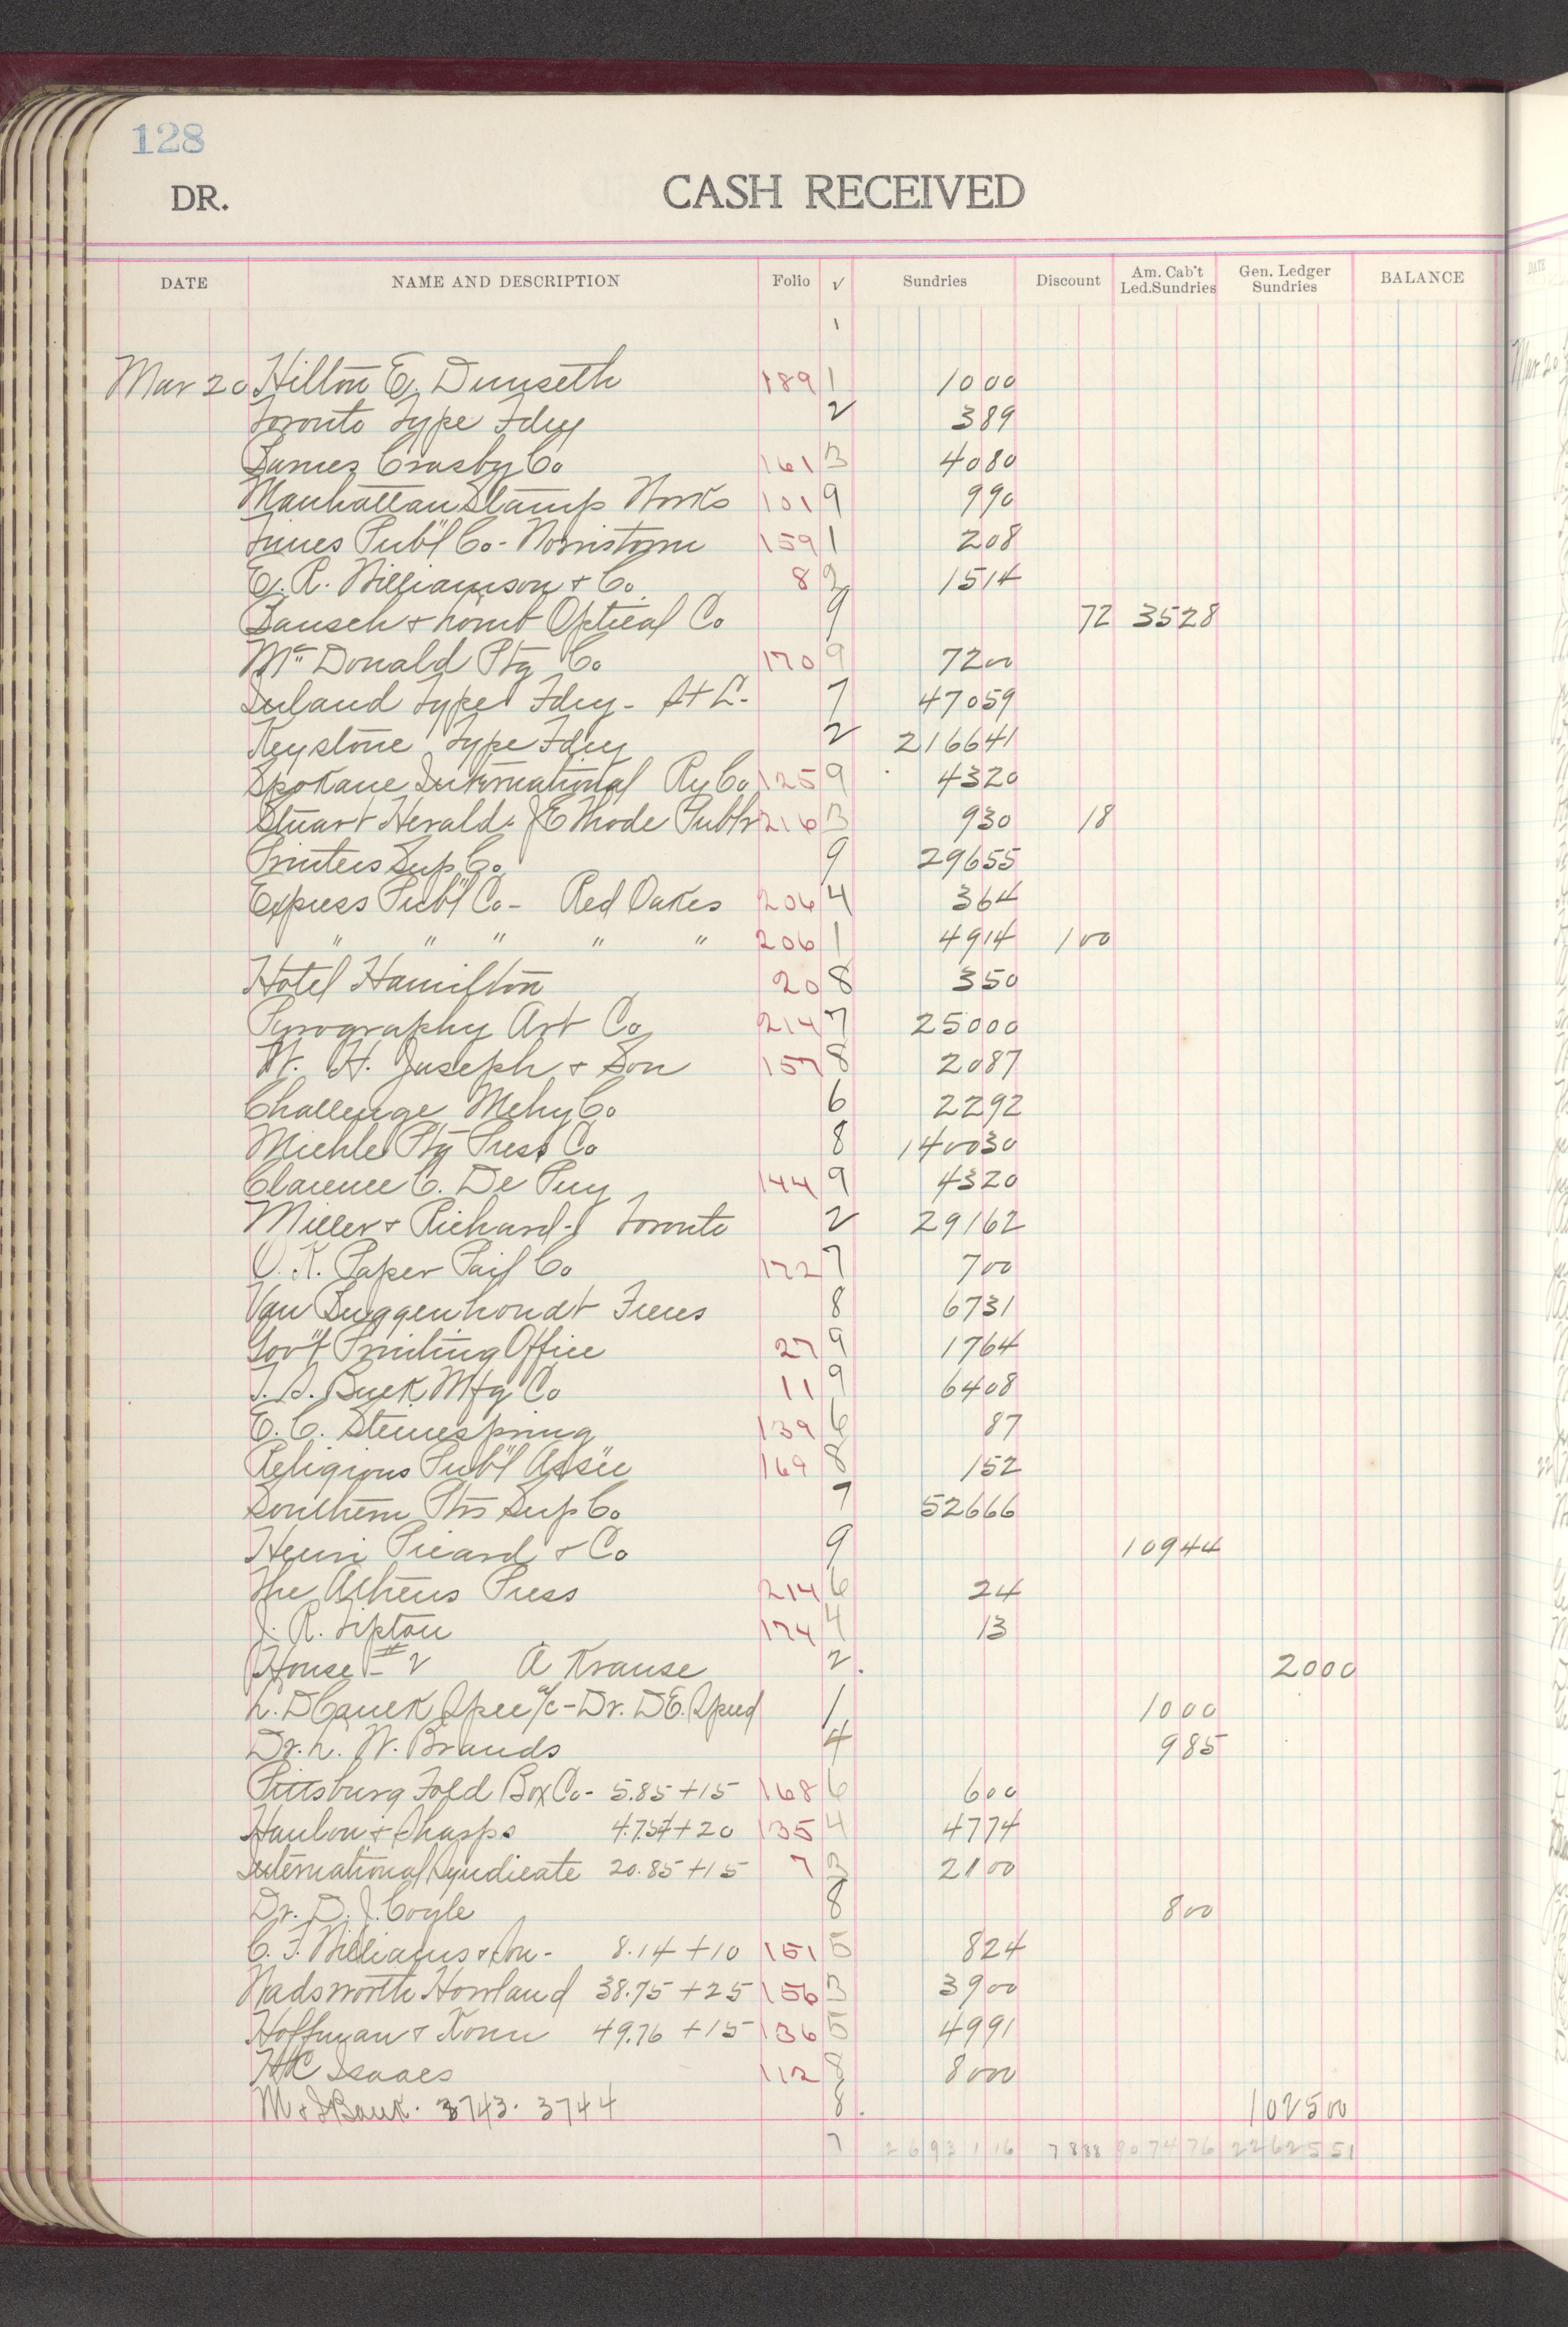 128
DR. CASH RECEIVED
DATE NAME AND DESCRIPTION Folio √ Sundries Discount Am. Cab't Led.Sundries Gen. Ledger Sundries BALANCE
1
Mar 20 Hilton E. Dunseth 189 1 1000
Toronto Type Fdry 2 389
James Crosby Co 161 3 4080
Manhattan Stamp Works 101 9 990
Times Pub'l Co - Norristown 159 1 208
E. R. Williamson & Co. 8 2 1514
Bausch & Lomb Optical Co 9 72 3528
Mc Donald Ptg Co 170 9 7200
Inland Type Fdry - St L. 7 47059
Keystone Type Fdry 2 216641
Spokane International Ry Co 125 9 4320
Stuart Herald. J E Rhode Publr 216 3 930 18
Printers Sup Co. 9 29655
Express Pub'l Co - Red Oakes 206 4 364
" " " " " 206 1 4914 100
Hotel Hamilton 20 8 350
Pyrography Art Co 214 7 25000
W. H. Joseph & Son 157 8 2087
Challenge Mchy Co 6 2292
Miehle Ptg Press Co 8 140030
Clarence C. De Puy 144 9 4320
Miller & Richard - Toronto 2 29162
O. K. Paper Pail Co 172 7 700
Van Buggenhoudt Freres 8 6731
Gov't Printing Office 27 9 1764
9 11 6408 Buck Mfg Co
E. C. Steinespring 139 6 87
Religious Pub'l Ass'n 169 8 152
Southern Ptrs Sup Co. 7 52666
Henri Picard & Co 9 10944
The Athens Press 214 6 24
J. R. Tipton 174 4 13
House #2 A Krause 2. 2000
L. D Caulk Spec a/c - Dr. D E. Speed 1 1000
Dr. L. W. Brands 4 985
Pittsburg Fold Box Co - 5.85 + 15 168 6 600
Hanlon & Sharps 47.54 + 20 135 4 4774
International Syndicate 20.85 + 15 7 3 2100
Dr. D. J. Coyle 8 800
C. F. Williams & Son - 8.14 + 10 151 5 824
Wadsworth Howland 38.75 + 25 156 3 3900
Hoffman & Konn 49.76 + 15 136 5 4991
H C Isaacs 112 8 8000
M & J Bank. 3743. 3744 8. 102500
7 2693116 7888 907476 2262551